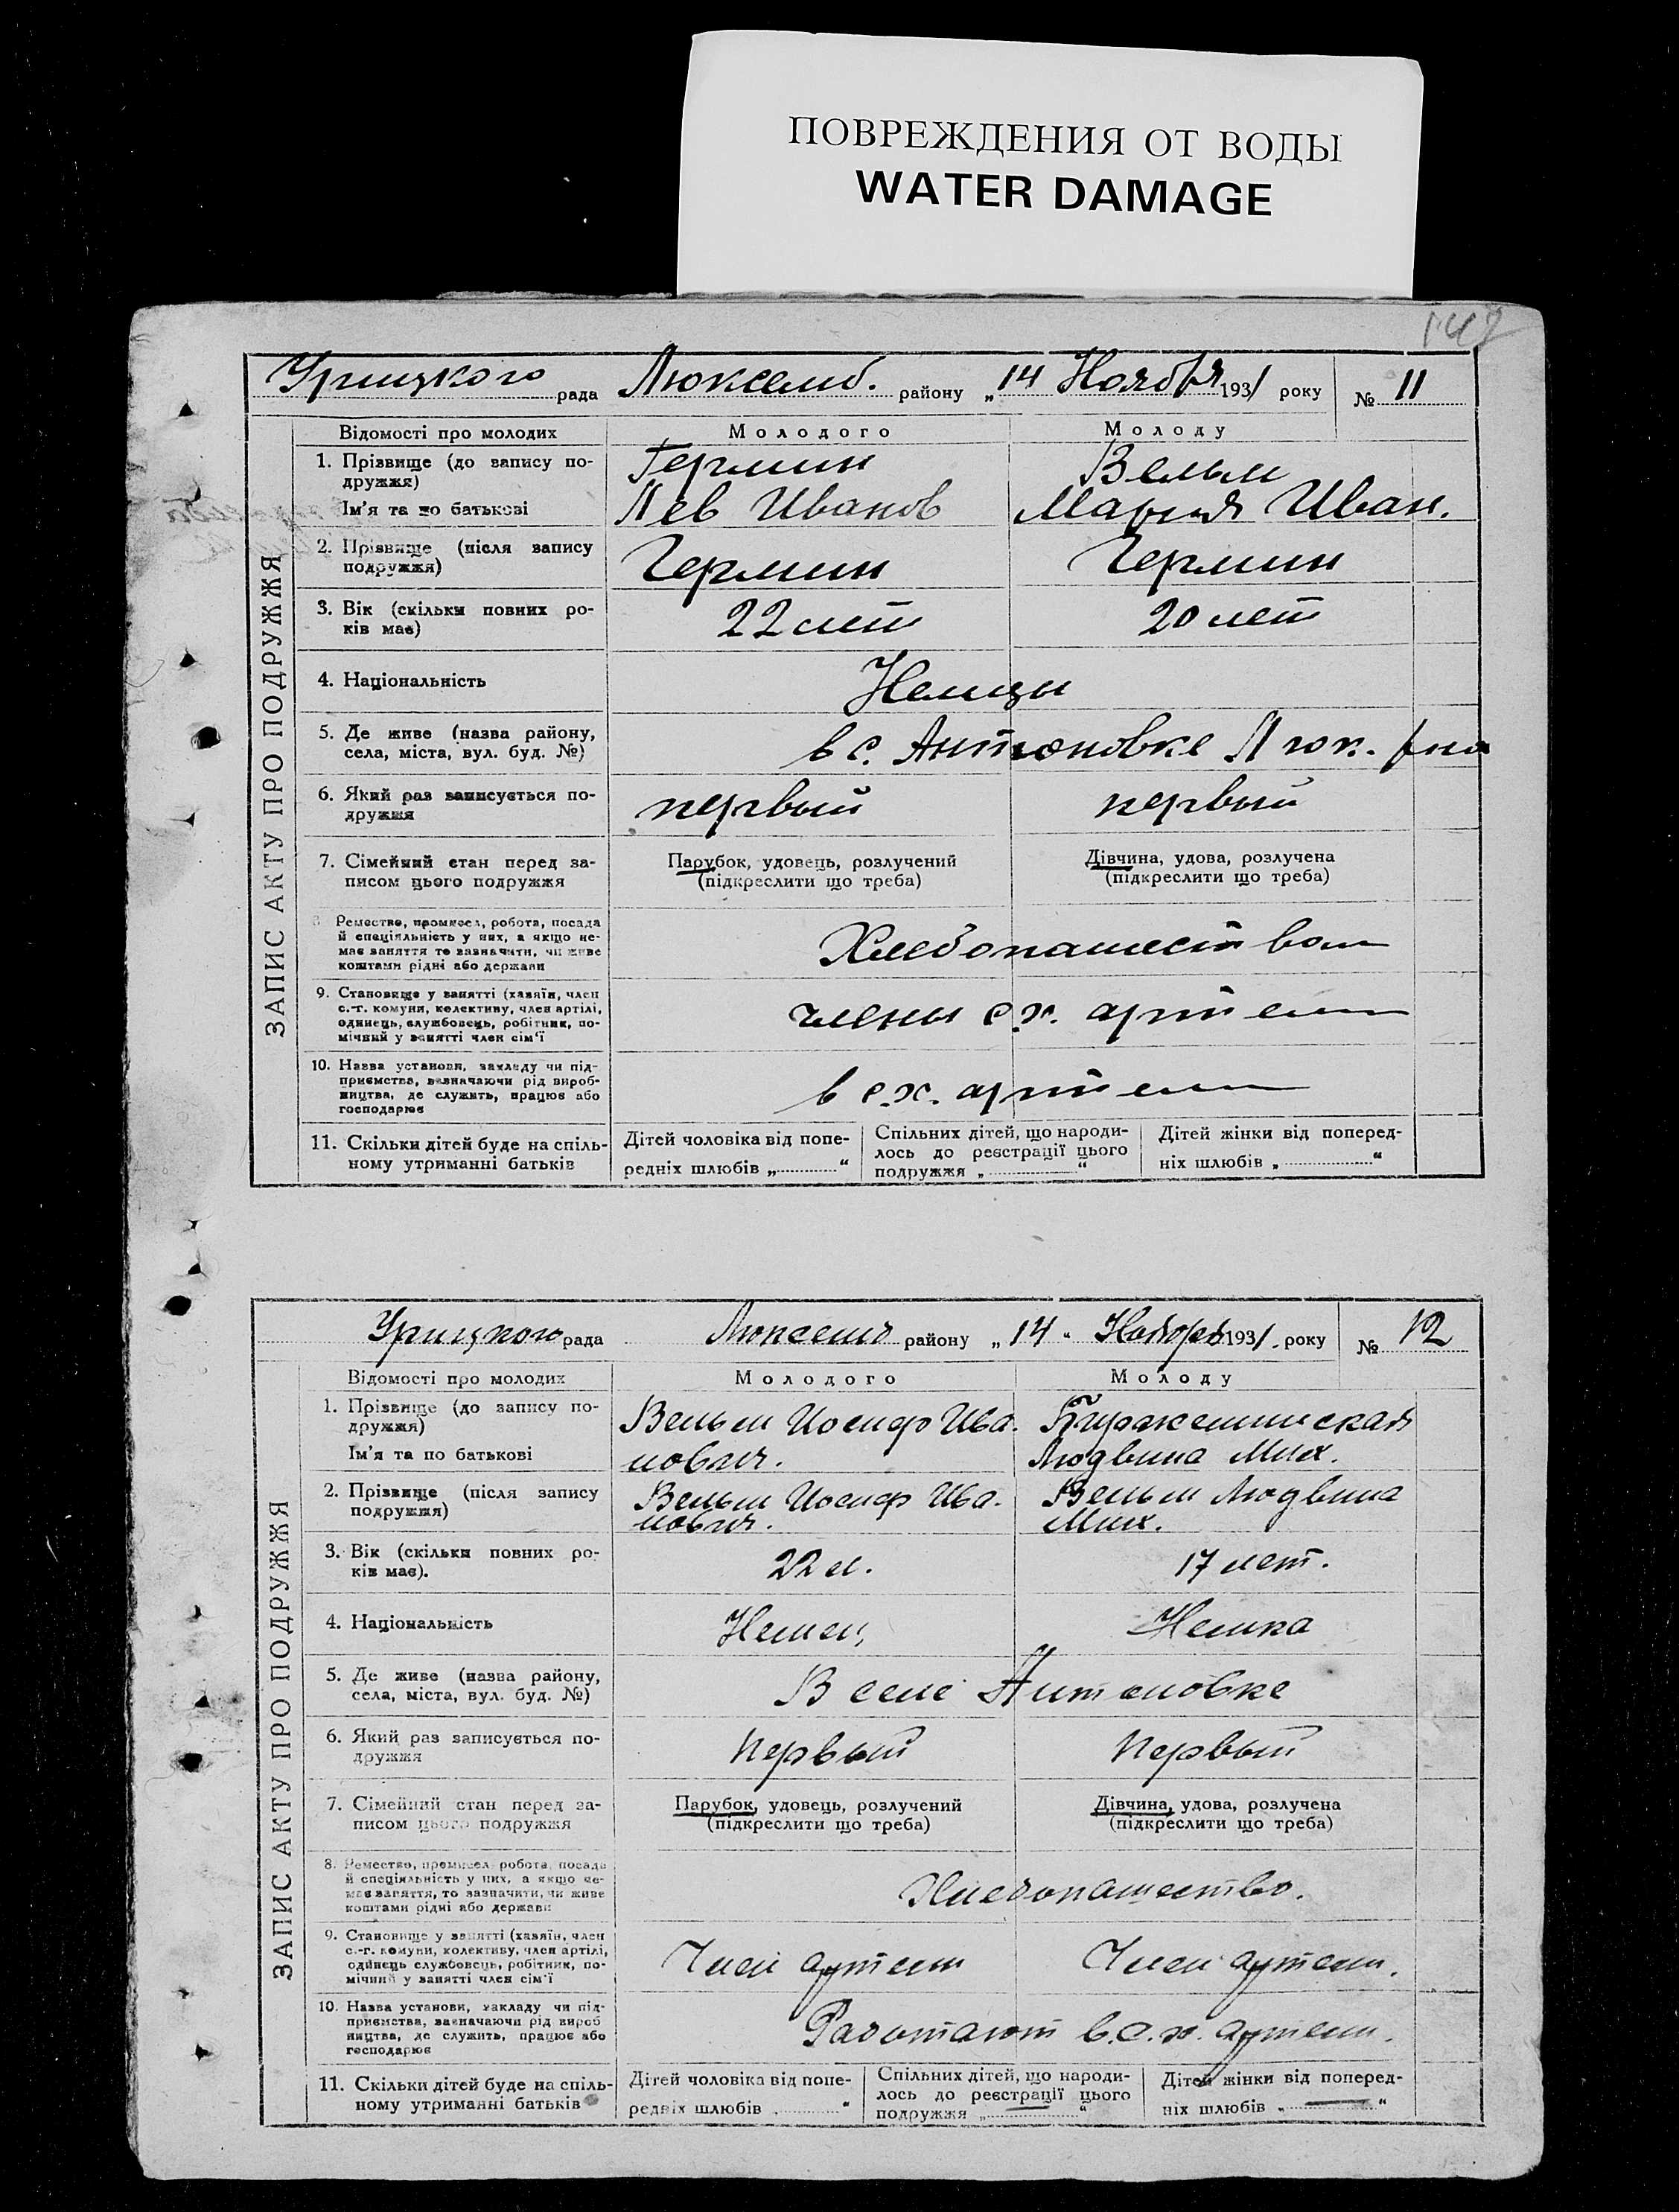 ПОВРЕЖДЕНИЯ ОТ ВОДЫ
WATER DAMAGE
Урицкого рада Люксемб. району „14 Ноября 1931 року № 11
Відомості про молодих Молодого Молоду
1. Прізвище (до запису по- Гермин Вельм
дружжя)
Ім'я та по батькові Лев Иванов Мария Иван.
2. Прізвище (після запису Гермин Гермин
подружжя)
3. Вік (скільки повних ро- 22 лет 20 лет
ків має)
4. Національність Немцы
5. Де живе (назва району, в с. Антоновке Люк. р-на
села, міста, вул. буд. №)
6. Який раз записується по- первый первый
дружжя
7. Сімейний стан перед за- Парубок, удовець, розлучений Дівчина, удова, розлучена
писом цього подружжя (підкреслити що треба) (підкреслити що треба)
8. Ремество, промисел, робота, посада
й спеціяльність у них, а якщо не- Хлебопашеством
має заняття то зазначити, чи живе
коштами рідні або держави
9. Становище у занятті (хазяїн, член
с.-г. комуни, колективу, член артілі, члены с.х. артели
одинець, службовець, робітник, по-
мічний у занятті член сім'ї
10. Назва установи, закладу чи під-
приємства, зазначаючи рід вироб- в с.х. артели
ництва, де служить, працює або
господарює
11. Скільки дітей буде на спіль- Дітей чоловіка від попе- Спільних дітей, що народи- Дітей жінки від поперед-
ному утриманні батьків редніх шлюбів „ “ лось до реєстрації цього ніх шлюбів „ “
подружжя „ “
ЗАПИС АКТУ ПРО ПОДРУЖЖЯ
Урицкого рада Люксемб району „14 “ Ноября 1931 року № 12
Відомості про молодих Молодого Молоду
1. Прізвище (до запису по- Вельм Иосиф Ива-
дружжя) нович.
Ім'я та по батькові Людвина Мих.
2. Прізвище (після запису Вельм Иосиф Ива- Вельм Людвина
подружжя) нович. Мих.
3. Вік (скільки повних ро- 22 л. 17 лет.
ків має).
4. Національність Немец Немка
5. Де живе (назва району, В селе Антоновке
села, міста, вул. буд. №)
6. Який раз записується по- Первый Первый
дружжя
7. Сімейний стан перед за- Парубок, удовець, розлучений Дівчина, удова, розлучена
писом цього подружжя (підкреслити що треба) (підкреслити що треба)
8. Ремество, промисел робота, посада
й спеціяльність у них, а якщо не- Хлебопашество.
має заняття, то зазначити, чи живе
коштами рідні або держави
9. Становище у занятті (хазяїн, член
с.-г. комуни, колективу, член артілі, Член артели Член артели.
одинець службовець, робітник, по-
мічний у занятті член сім'ї
10. Назва установи, закладу чи під-
приємства, зазначаючи рід вироб Работают в с.х. артели.
ництва, де служить, працює або
господарює
11. Скільки дітей буде на спіль- Дітей чоловіка від попе- Спільних дітей, що народи- Дітей жінки від поперед-
ному утриманні батьків редніх шлюбів „ “ лось до реєстрації цього ніх шлюбів „ — “
подружжя „ — “
ЗАПИС АКТУ ПРО ПОДРУЖЖЯ